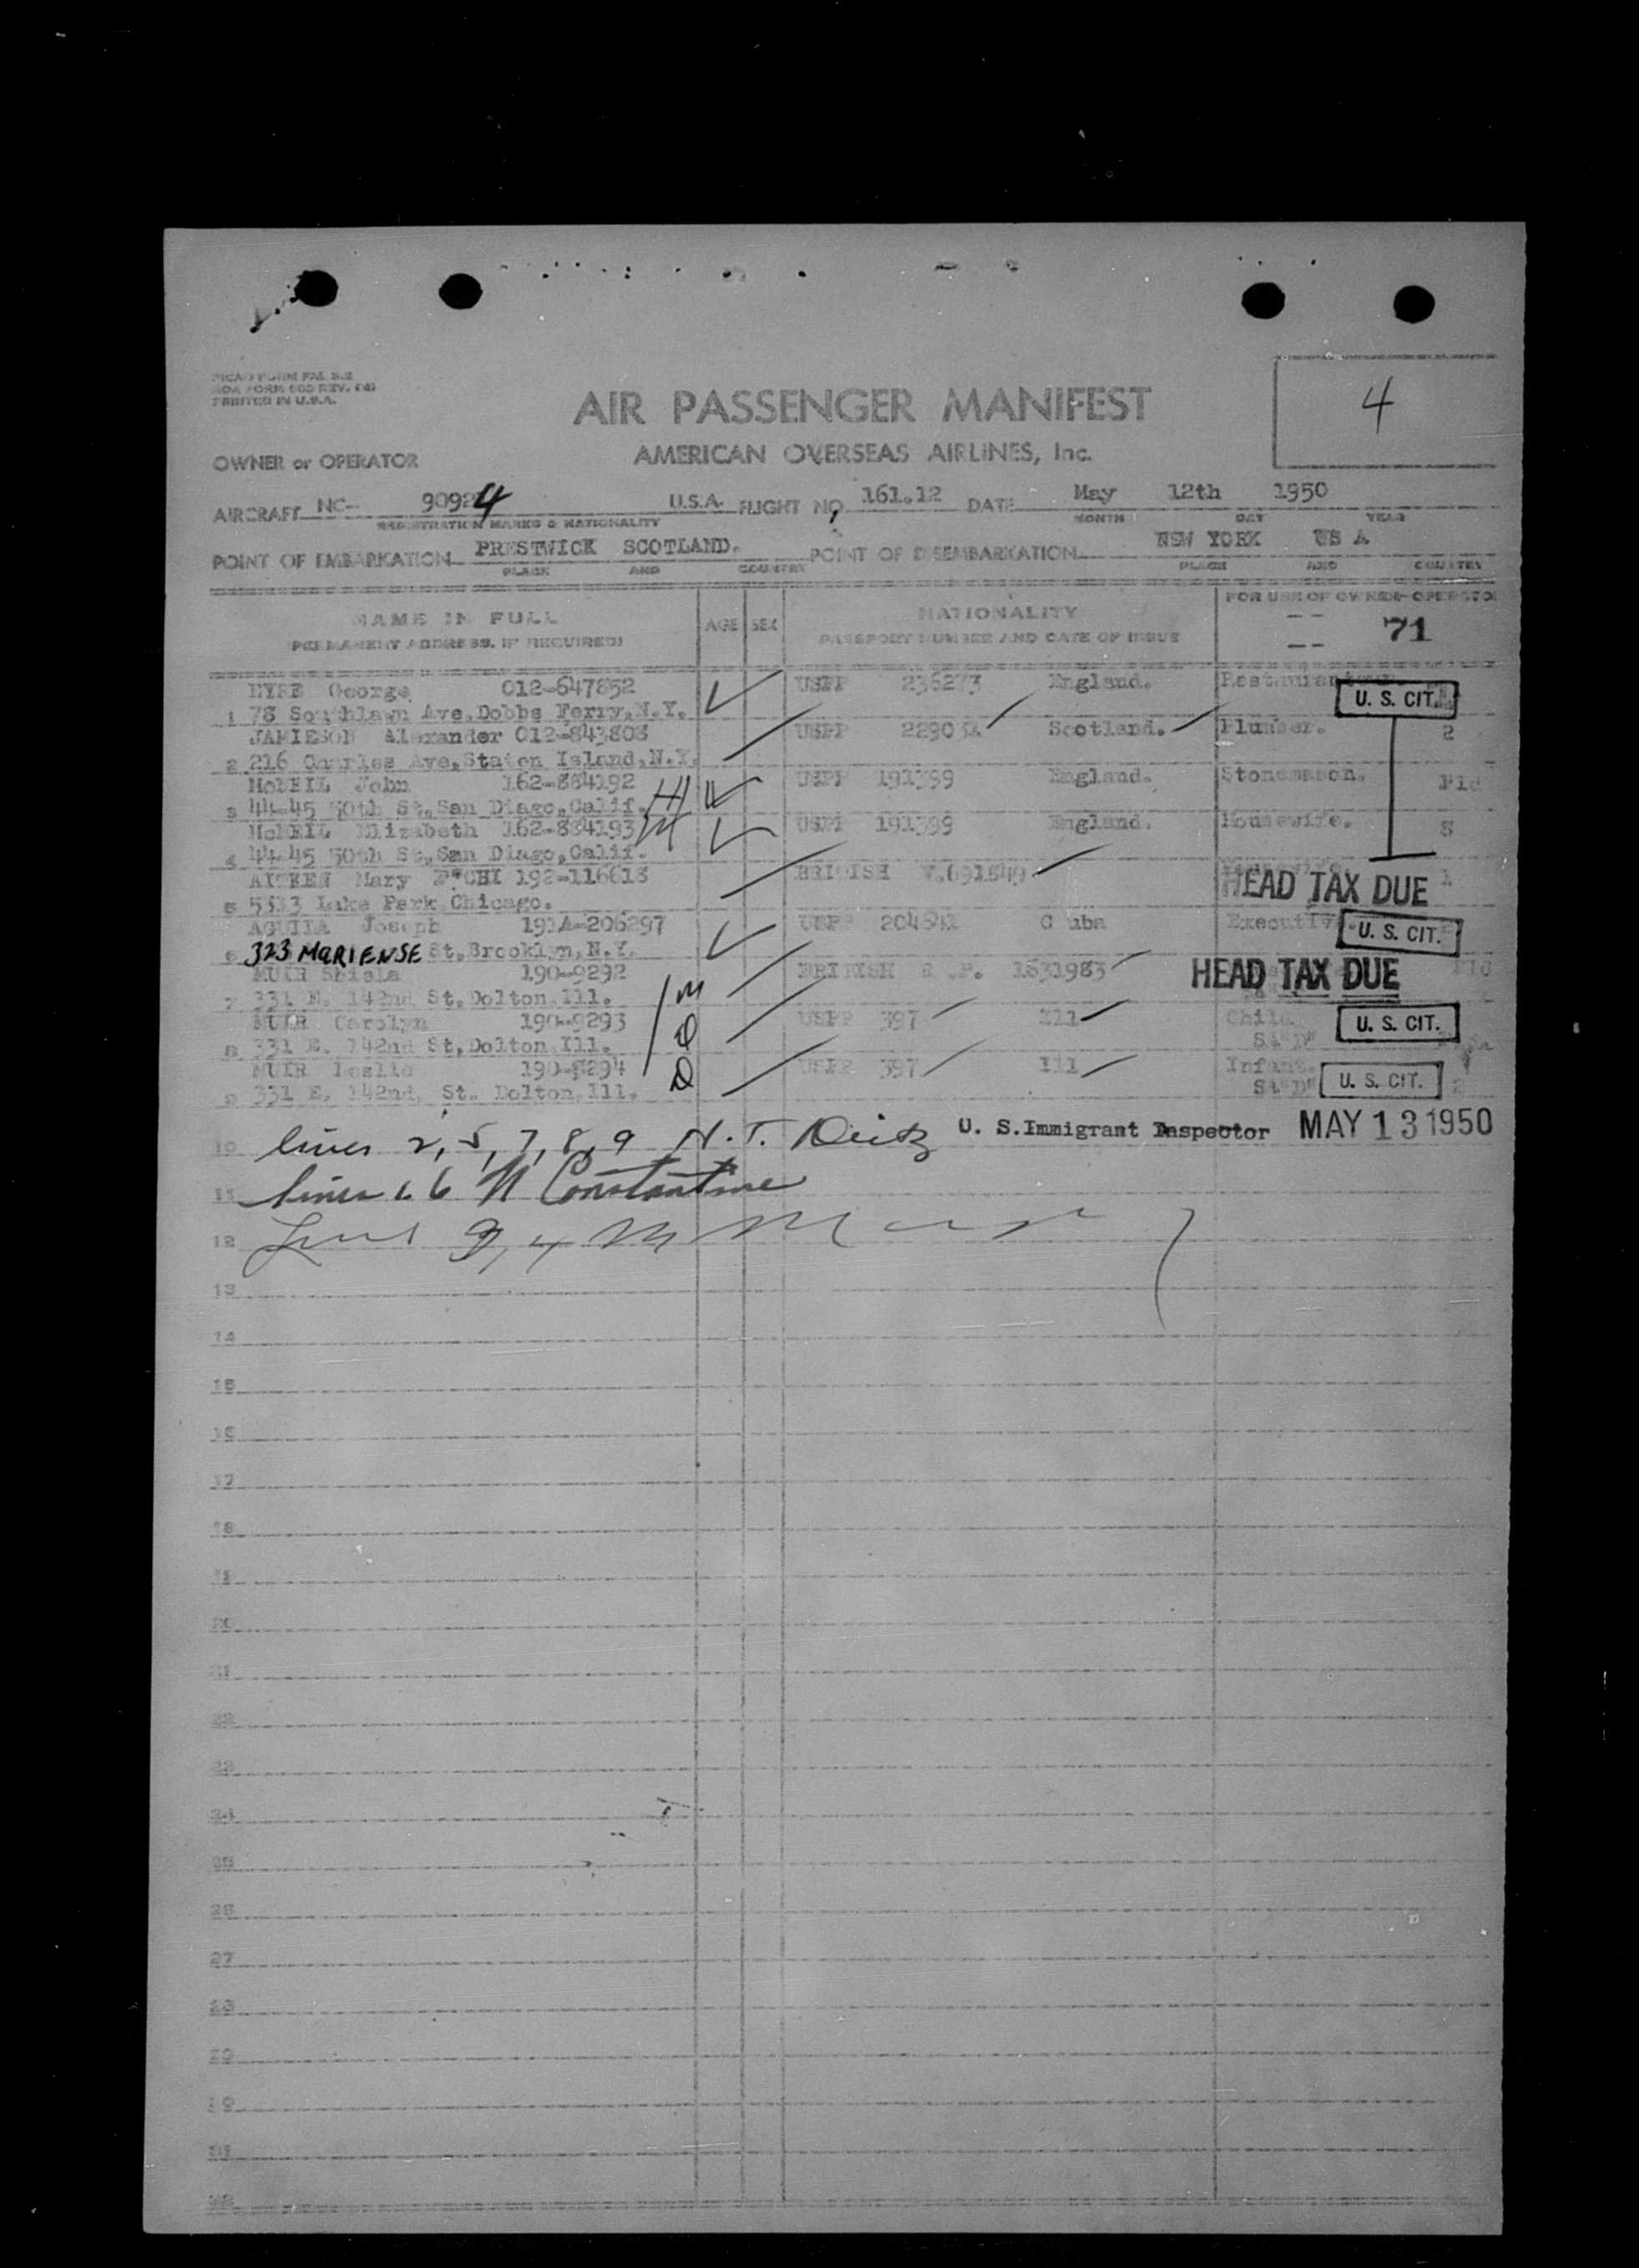 PRINTED IN U.S.A.
4
AIR PASSENGER MANIFEST
AMERICAN OVERSEAS AIRLINES, Inc.
OWNER or OPERATOR
AIRCRAFT NC- 90924 U.S.A. FLIGHT NO. 161.12 DATE May 12th 1950
REGISTRATION MARKS & NATIONALITY MONTH DAY YEAR
POINT OF EMBARKATION PRESTWICK SCOTLAND. POINT OF DISEMBARKATION NEW YORK US A
PLACE AND COUNTRY PLACE AND COUNTRY
NAME IN FULL AGE SEX NATIONALITY FOR USE OF OWNER-OPERATO
(PERMANENT ADDRESS, IF REQUIRED) PASSPORT NUMBER AND DATE OF ISSUE 71
EYRE George 012-647852 USPP 236273 England.
1 78 Southlawn Ave, Dobbs Ferry, N.Y. U. S. CIT.
JAMIESON Alexander 012-843808 USPP Scotland. Plumber. 2
2 216 Charles Ave, Staten Island, N.Y.
McNEIL John 162-884192 USPP 191399 England. Stonemason.
3 44-45 50th St, San Diago, Calif. H
McNEIL Elizabeth 162-884193 USPP 191399 England. Housewife.
4 44-45 50th St, San Diago, Calif.
AITKEN Mary 192-116618 BRITISH HEAD TAX DUE
5 Lake Park, Chicago.
AGUILA Joseph 191A-206297 USPP C uba Executive
6 323 MARIENSE St, Brooklyn, N.Y. U. S. CIT.
MUIR Shiela 190-9292 BRITISH 1631983 HEAD TAX DUE
7 331 E. 142nd St, Dolton Ill. M
MUIR Carolyn 190-9293 USPP 397 Ill Child U. S. CIT.
8 331 E. 142nd St, Dolton Ill. D
MUIR Leslie 190-9294 USPP 397 Ill Infant.
9 331 E. 142nd, St. Dolton, Ill. D U. S. CIT.
10 lines 2, 5, 7, 8, 9 U. S. Immigrant Inspector MAY 13 1950
11 6 N Constantine
12 3, 4
13
14
15
16
17
18
19
20
21
22
23
24
25
26
27
28
29